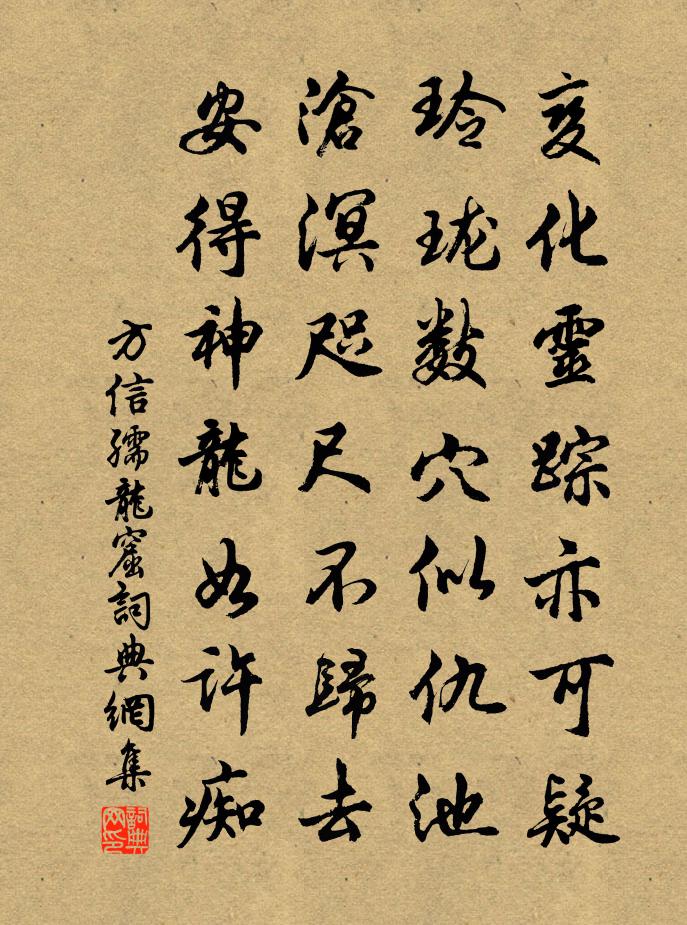 变化靈踪亦可疑
玲珑數穴似仇池
滄溟咫尺不歸去
安得神龍如許痴
方信孺龍窟詞典網集
詞典网印